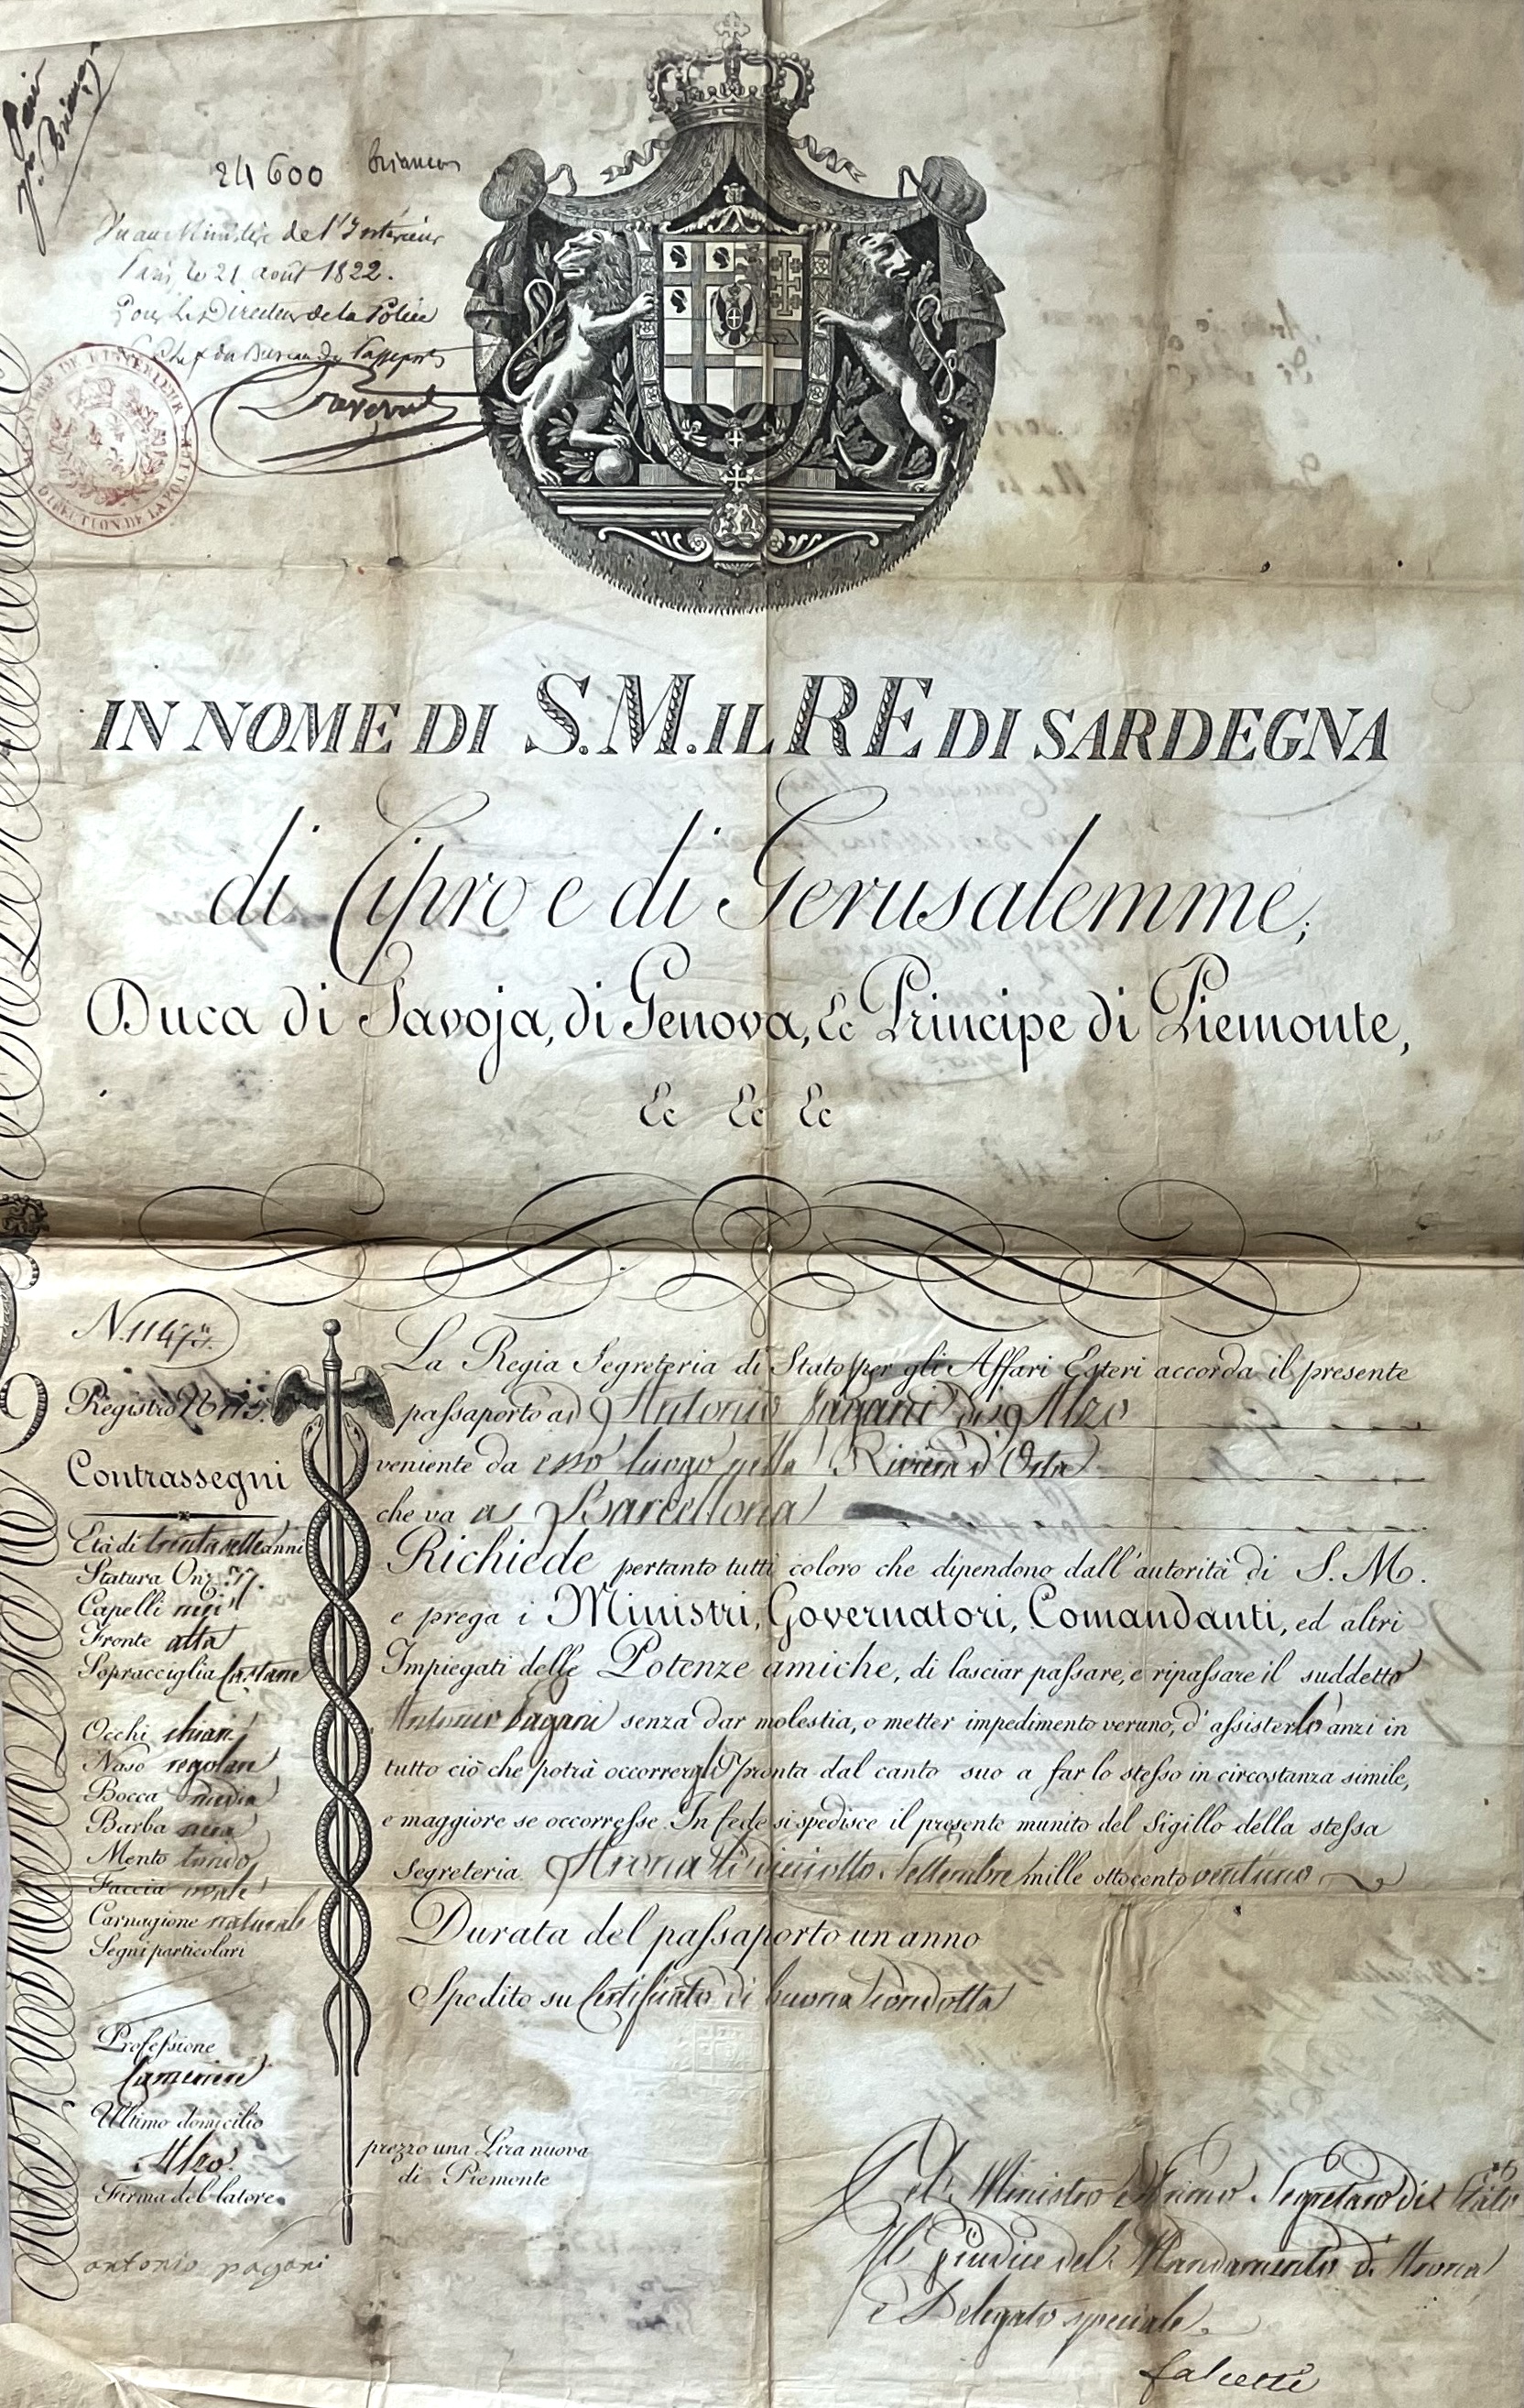 24600 briancon
Vu au Ministère de l'Intérieur
Paris, le 21 août 1822.
Pour Le Directeur de la Police
Le Chef du Bureau des Passeports
DIRECTION DE LA POLICE
IN NOME DI S.M. IL RE DI SARDEGNA
di Cipro e di Gerusalemme,
Duca di Savoja, di Genova, &c Principe di Piemonte,
&c &c &c
N. 11475.
Registro
Contrassegni
Età di trentasette anni
Statura Onz. 37.
Capelli neri
Fronte alta
Sopracciglia Castane
Occhi chiari
Naso regolare
Bocca media
Barba nera
Mento tondo
Faccia ovale
Carnagione naturale
Segni particolari
Professione
Cameriere
Ultimo domicilio
Alzo.
Firma del latore
antonio pagani
La Regia Segreteria di Stato per gli Affari Esteri accorda il presente
passaporto ad Antonio Pagani di Alzo
veniente da esso luogo nella Riviera d'Orta
che va a Barcellona
Richiede pertanto tutti coloro che dipendono dall'autorità di S. M.
e prega i Ministri, Governatori, Comandanti, ed altri
Impiegati delle Potenze amiche, di lasciar passare, e ripassare il suddetto
Antonio Pagani senza dar molestia, o metter impedimento veruno, d'assisterlo anzi in
tutto ciò che potrà occorrergli Pronta dal canto suo a far lo stesso in circostanza simile,
e maggiore se occorresse. In fede si spedisce il presente munito del Sigillo della stessa
Segreteria. Arona li dieciotto Settembre mille ottocento ventuno
Durata del passaporto un anno
Spedito su Certificato di buona Condotta
prezzo una Lira nuova
di Piemonte
Pel Ministro e Primo Segretaro di Stato
Il Giudice del Mandamento di Arona
e Delegato speciale.